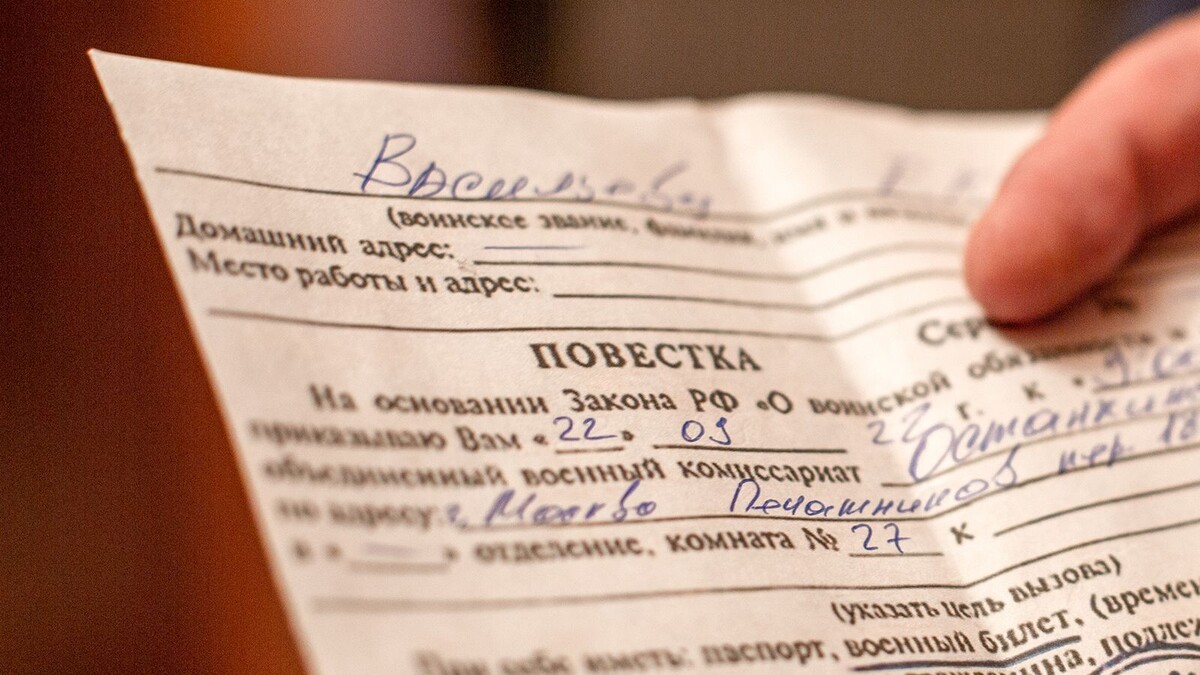 (воинское звание, фамилия, имя и
Домашний адрес:
Место работы и адрес:
ПОВЕСТКА
На основании Закона РФ «О воинской
приказываю Вам «22» 09 22 г. к «9
объединенный военный комиссариат
по адресу: г. Москва Печатников пер. 18
в « » отделение, комната № 27 к
(указать цель вызова)
При себе иметь: паспорт, военный билет,